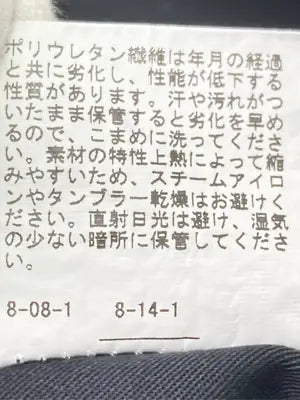 ポリウレタン繊維は年月の経過
と共に劣化し、性能が低下する
性質があります。汗や汚れがつ
いたまま保管すると劣化を早め
るので、こまめに洗ってくださ
い。素材の特性上熱によって縮
みやすいため、スチームアイロ
ンやタンブラー乾燥はお避けく
ださい。直射日光は避け、湿気
の少ない暗所に保管してくださ
い。
8-08-1 8-14-1